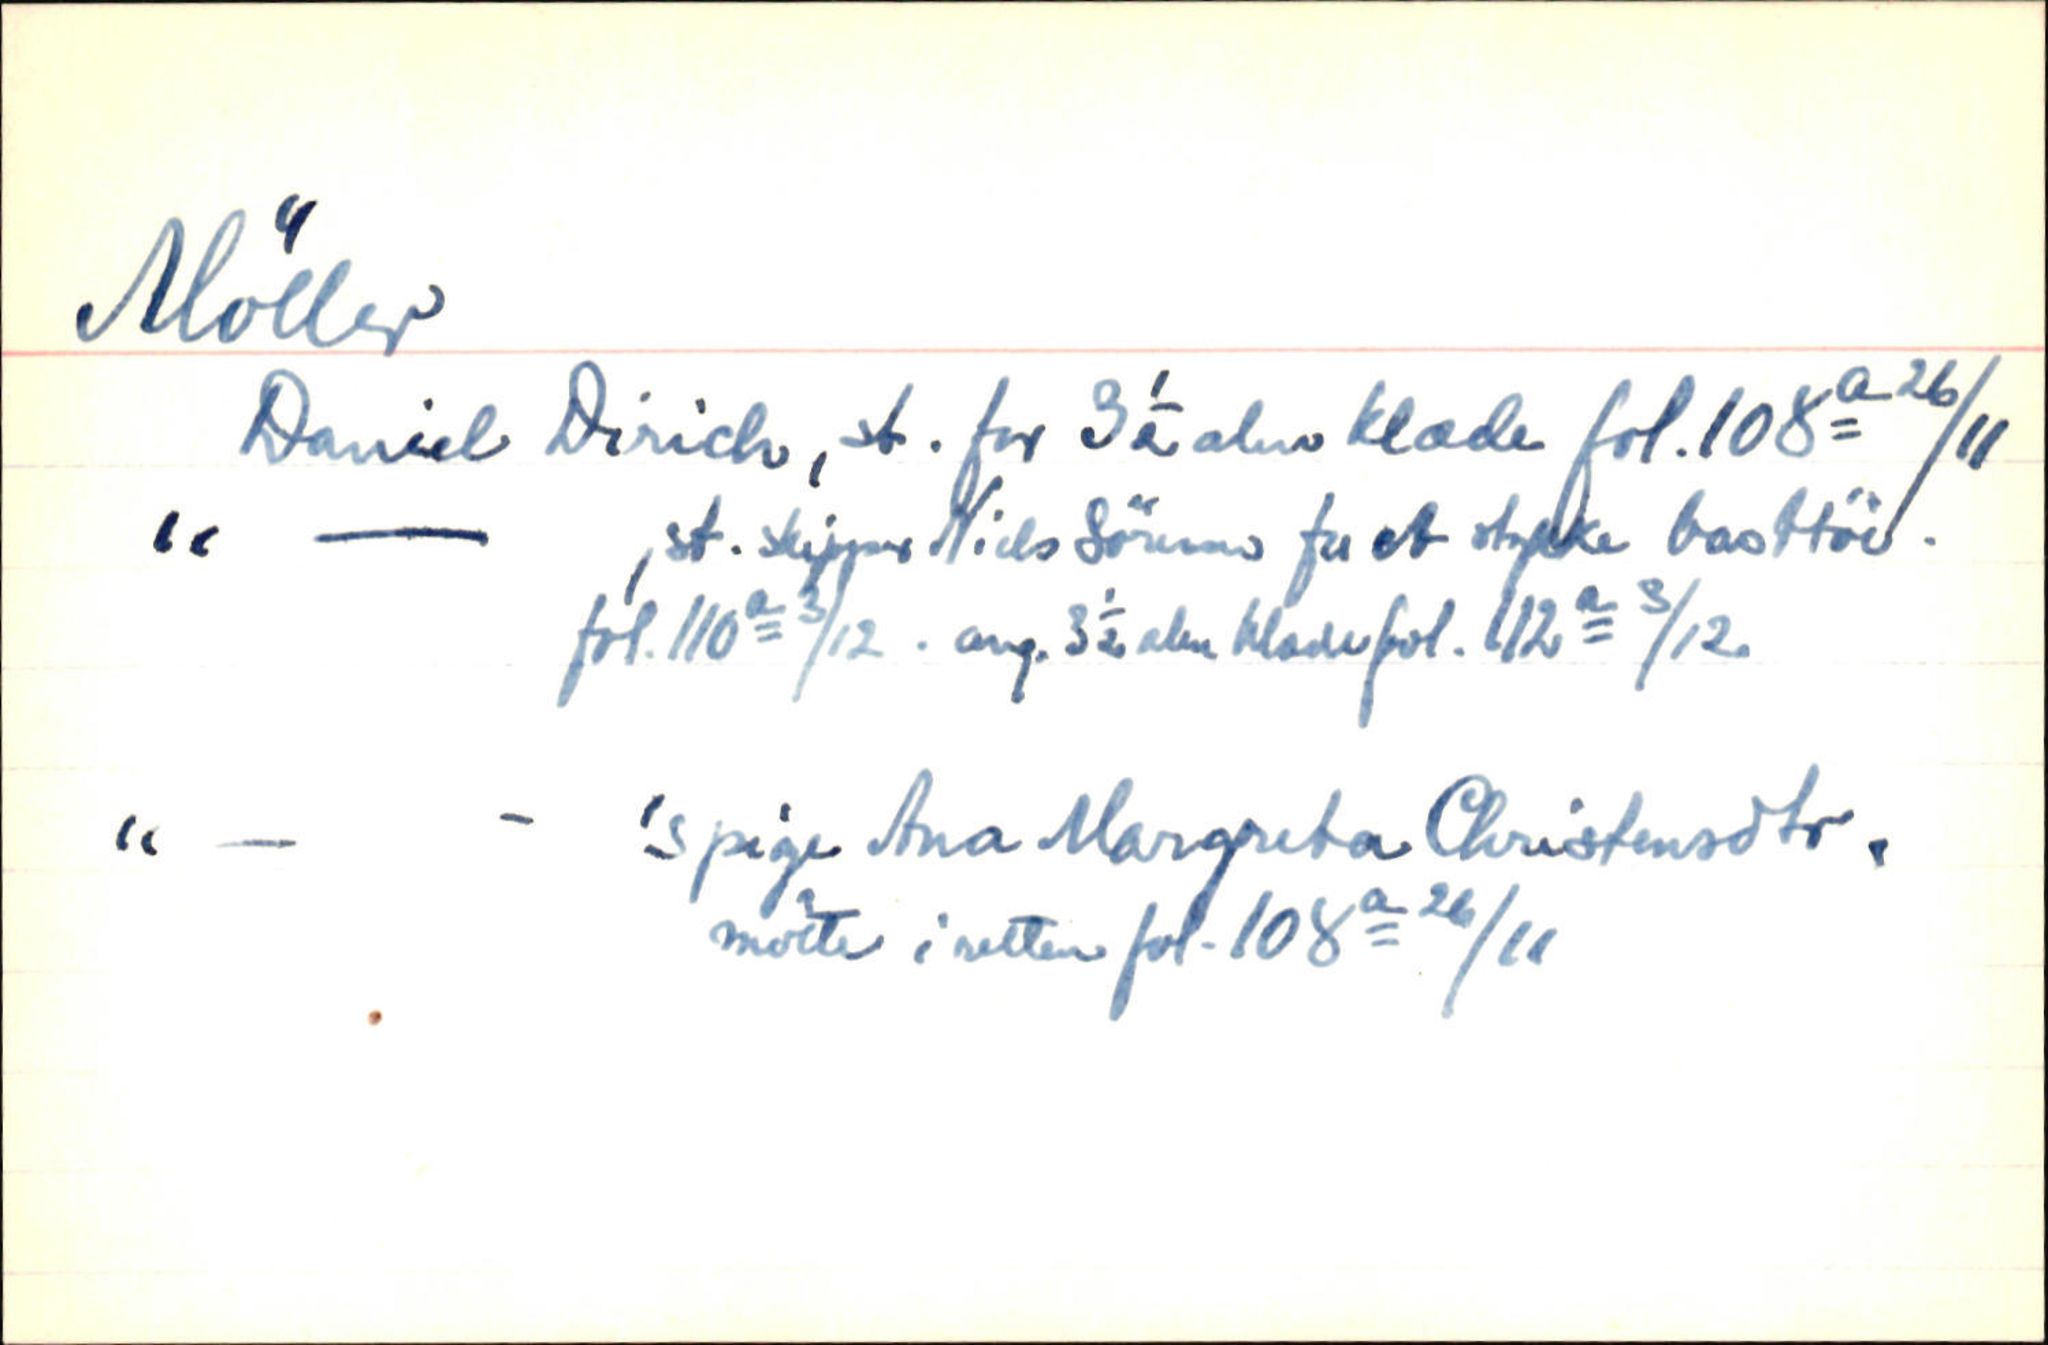 Möller
Daniel Dirich, st. for 3 1/2 alen klæde fol. 108a 26/11
" — , st. skipper Niels Sörensen for et stykke basttöi.
fol. 110a 3/12. ang. 3 1/2 alen klæde fol. 112a 3/12.
" — - 's pige Ana Margreta Christensdtr.
mötte i retten fol. 108a 26/11